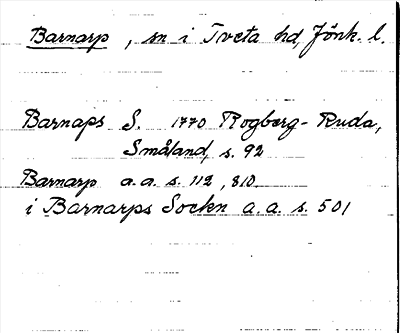 Barnarp, sn i Tveta hd, Jönk. l.
Barnaps S. 1770 Rogberg-Ruda,
Småland, s. 92
Barnarp a.a. s. 112, 810
i Barnarps Sockn a.a. s. 501